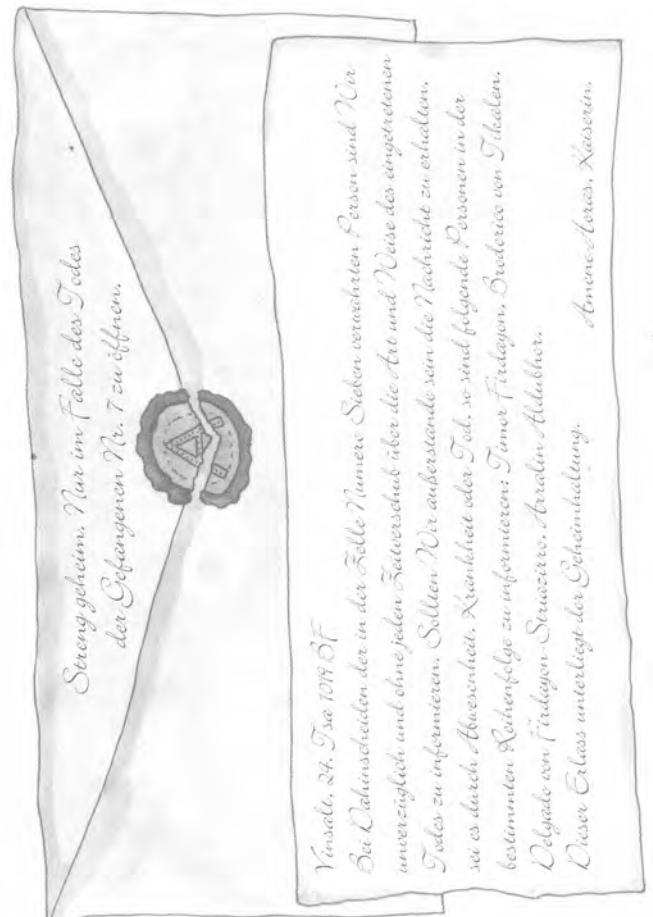 Streng geheim. Nur im Falle des Todes
der Gefangenen Nr. 7 zu öffnen.
Vinsalt, 24. Tsa 1019 BF
Bei Dahinscheiden der in der Zelle Numero Sieben verwahrten Person sind Wir
unverzüglich und ohne jeden Zeitverschub über die Art und Weise des eingetretenen
Todes zu informieren. Sollten Wir außerstande sein die Nachricht zu erhalten,
sei es durch Abwesenheit, Krankheit oder Tod, so sind folgende Personen in der
bestimmten Reihenfolge zu informieren: Timor Firdayon, Broderico von Tikalen,
Delgado von Firdayon-Siriazirro, Arralin Aldubhor.
Dieser Erlass unterliegt der Geheimhaltung.
Amene-Horas, Kaiserin.